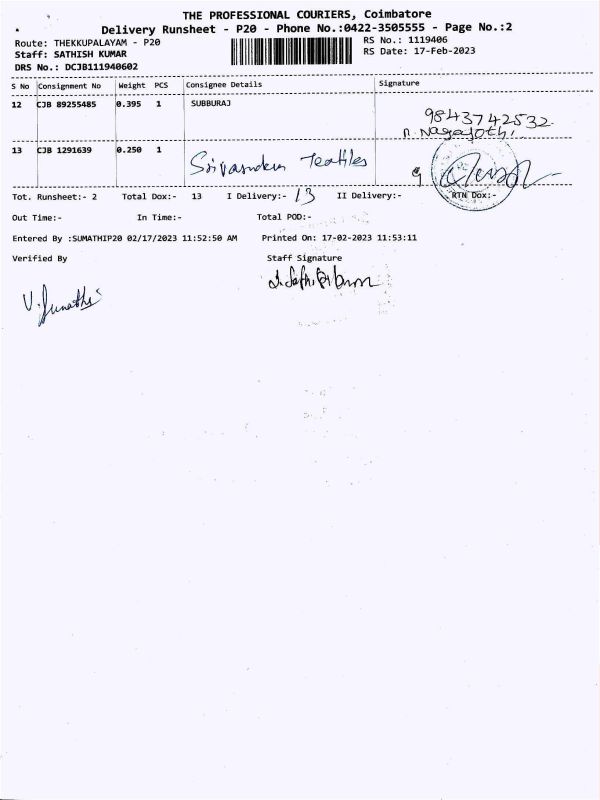 THE PROFESSIONAL COURIERS, Coimbatore
Delivery Runsheet - P20 - Phone No.:0422-3505555 - Page No.:2
Route: THEKKUPALAYAM - P20
Staff: SATHISH KUMAR
DRS No.: DCJB111940602
RS No.: 1119406
RS Date: 17-Feb-2023
S No Consignment No Weight PCS Consignee Details Signature
12 CJB 89255485 0.395 1 SUBBURAJ
9843742532
n. Nagajothi
13 CJB 1291639 0.250 1 Textiles
Tot. Runsheet:- 2 Total Dox:- 13 I Delivery:- 13 II Delivery:- RTN Dox:-
Out Time:- In Time:- Total POD:-
Entered By :SUMATHIP20 02/17/2023 11:52:50 AM Printed On: 17-02-2023 11:53:11
Verified By Staff Signature